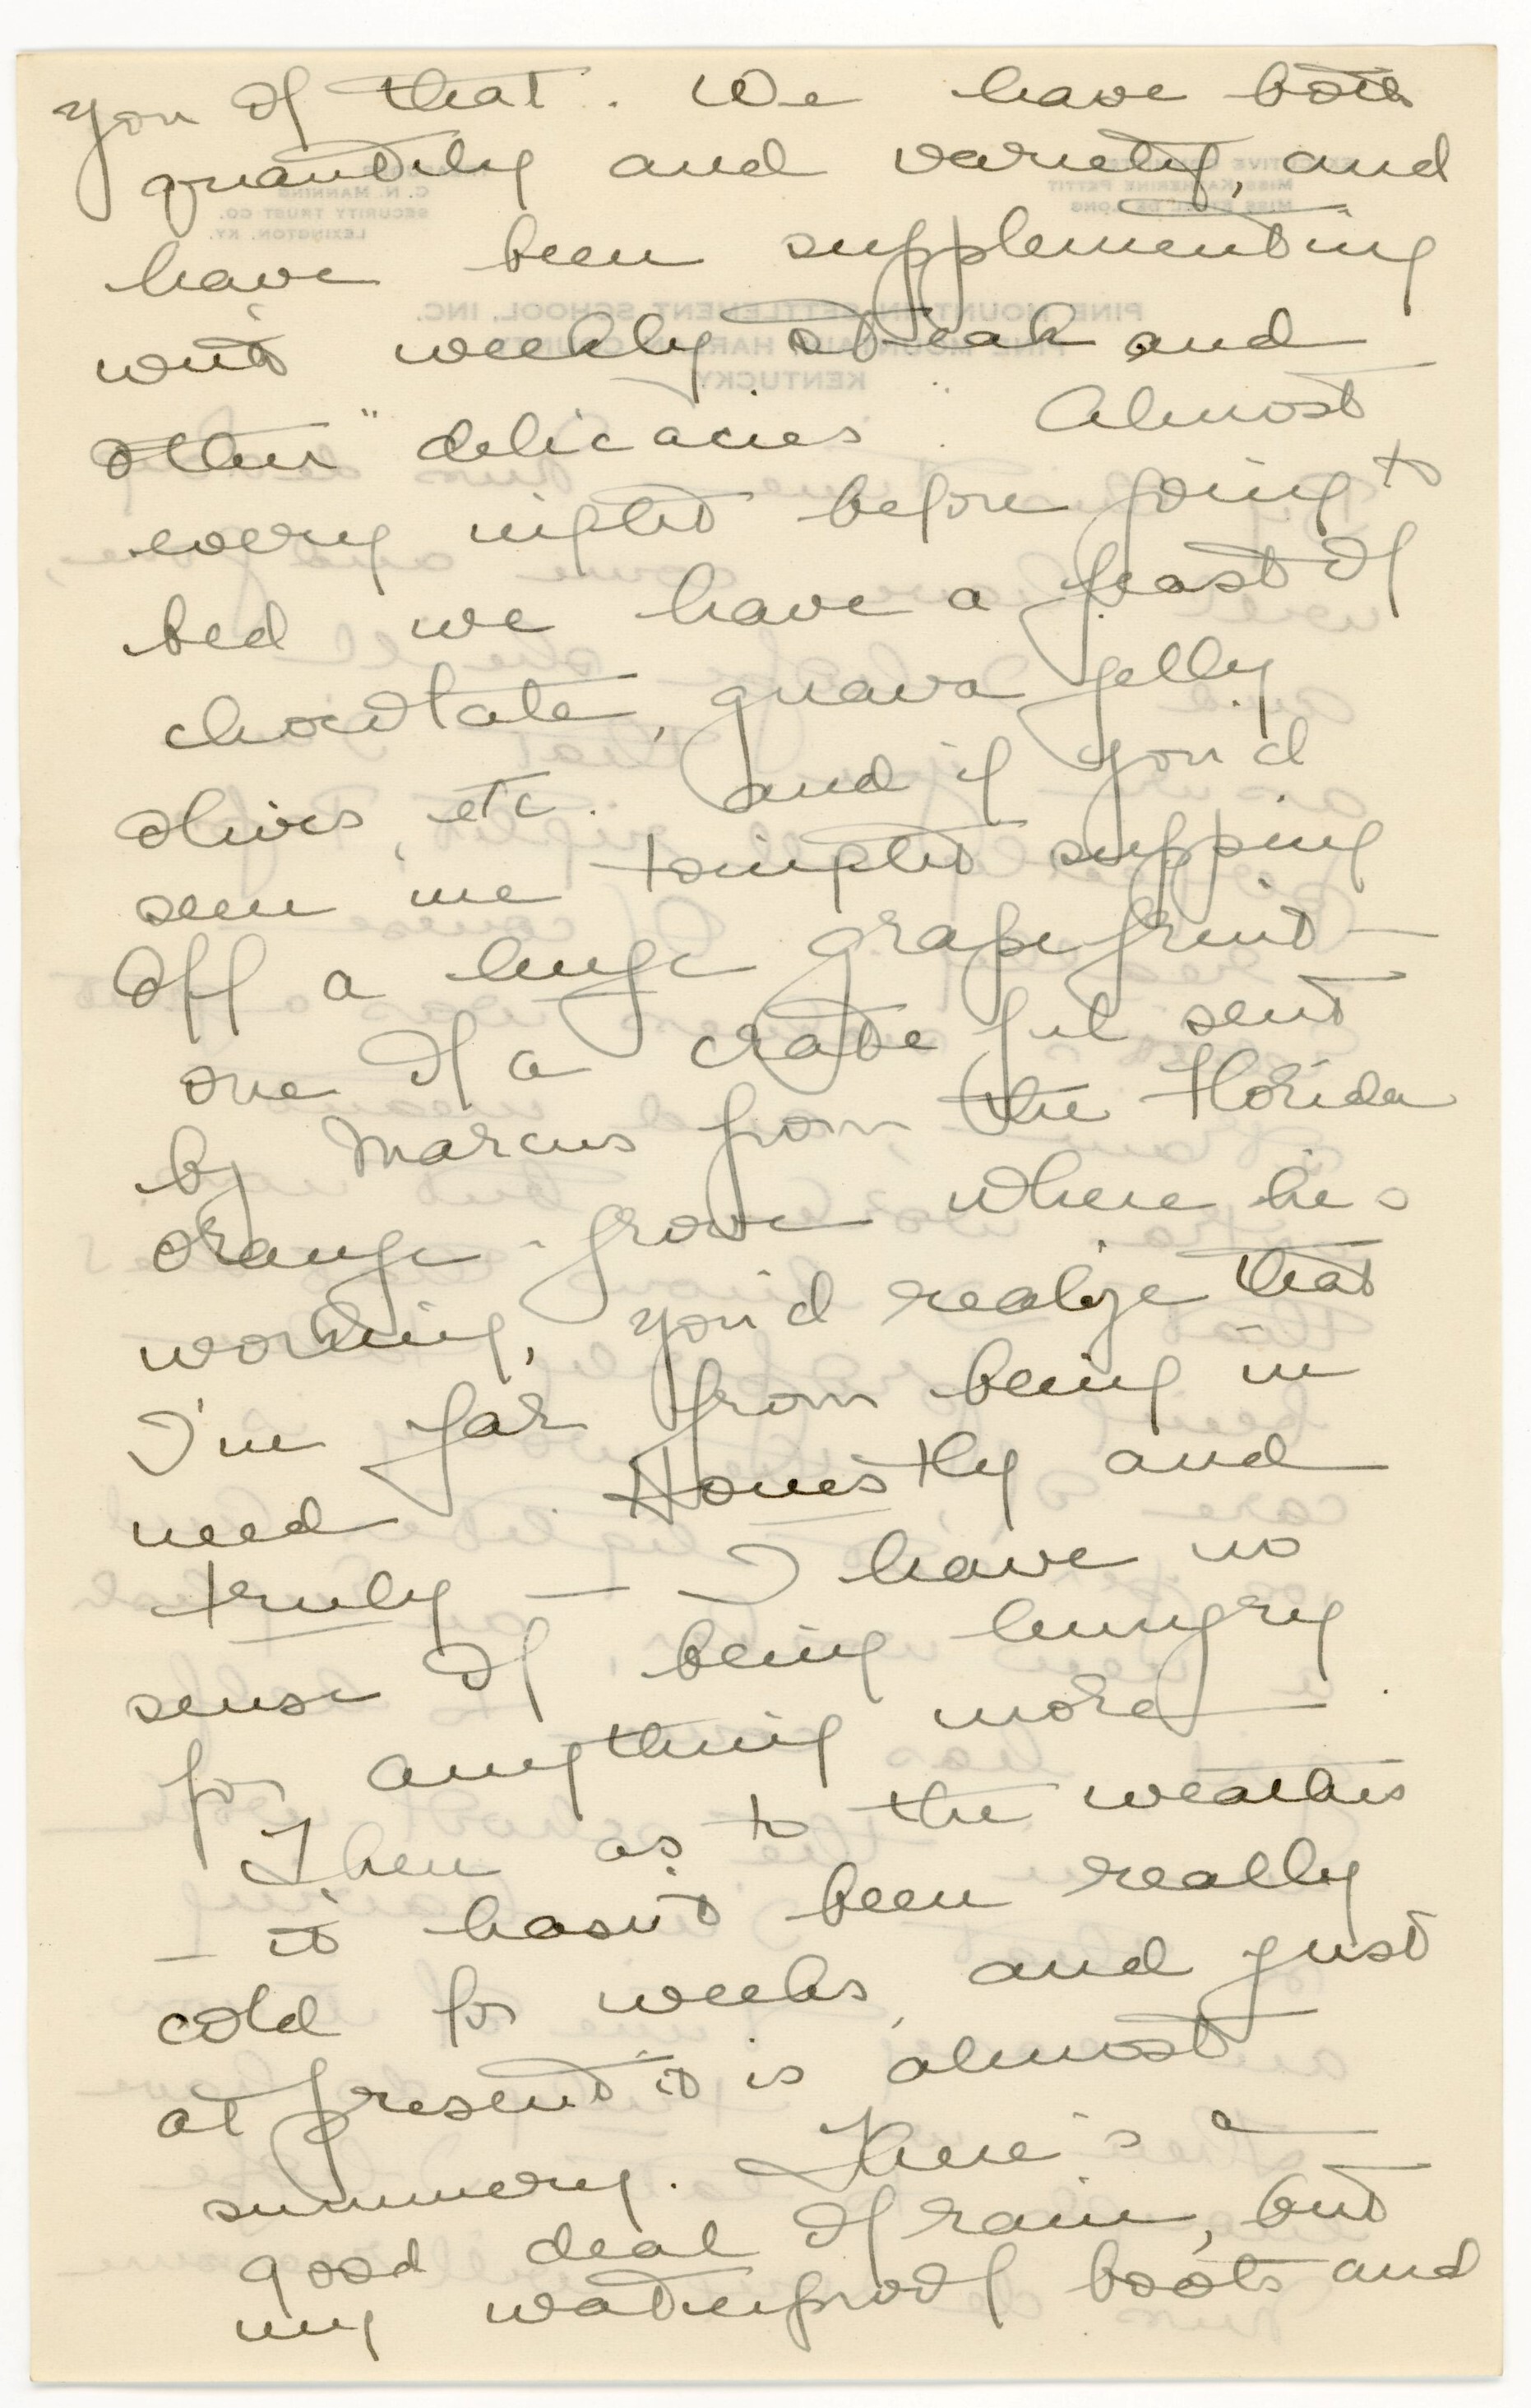 you of that. We have both
quantity and variety, and
have been supplementing
with weekly steak and
other "delicacies". Almost
every night before going to
bed we have a feast of
chocolate, guava jelly
olives, etc. And if you'd
seen me tonight supping
off a huge grapefruit –
one of a crate ful sent
by Marcus from the Florida
orange-grove where he's
working, you'd realize that
I'm far from being in
need. Honestly and
truly – I have no
sense of being hungry
for anything more.
Then as to the weather
– it hasn't been really
cold for weeks, and just
at present it is almost
summery. There's a
good deal of rain, but
my waterproof boots and